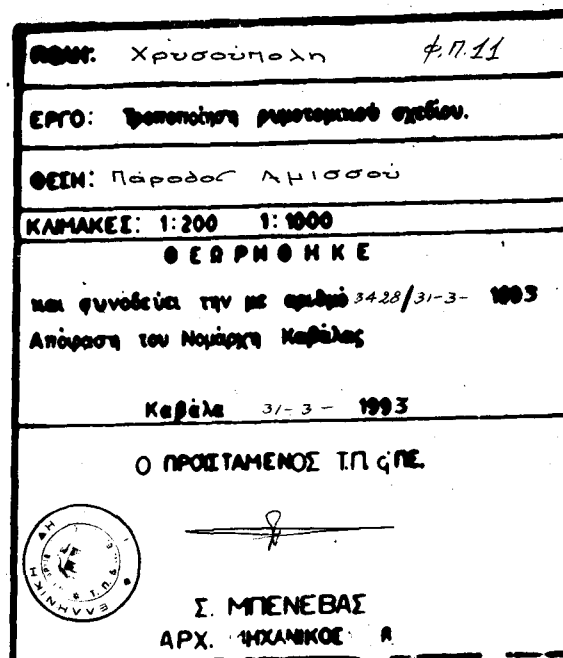 ΠΟΛΗ: Χρυσούπολη Φ.Π.11
ΕΡΓΟ: Τροποποίηση ρυμοτομικού σχεδίου.
ΘΕΣΗ: Πάροδος Αμισσού
ΚΛΙΜΑΚΕΣ: 1:200 1:1000
ΘΕΩΡΗΘΗΚΕ
και συνοδεύει την με αριθμό 3428/31-3- 1993
Απόφαση του Νομάρχη Καβάλας
Καβάλα 31-3- 1993
Ο ΠΡΟΪΣΤΑΜΕΝΟΣ Τ.Π. ς' ΠΕ.
ΕΛΛΗΝΙΚΗ
Σ. ΜΠΕΝΕΒΑΣ
ΑΡΧ. ΜΗΧΑΝΙΚΟΣ